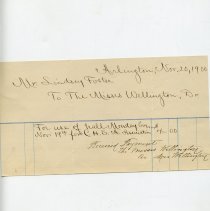 Arlington, Nov. 20, 1900
Mr. Lindsey Foster
To The Misses Wellington, Dr
For use of hall Monday evening
Nov 19th for H. D. A. 4 00
Received Payment
The Misses Wellington
Wellington